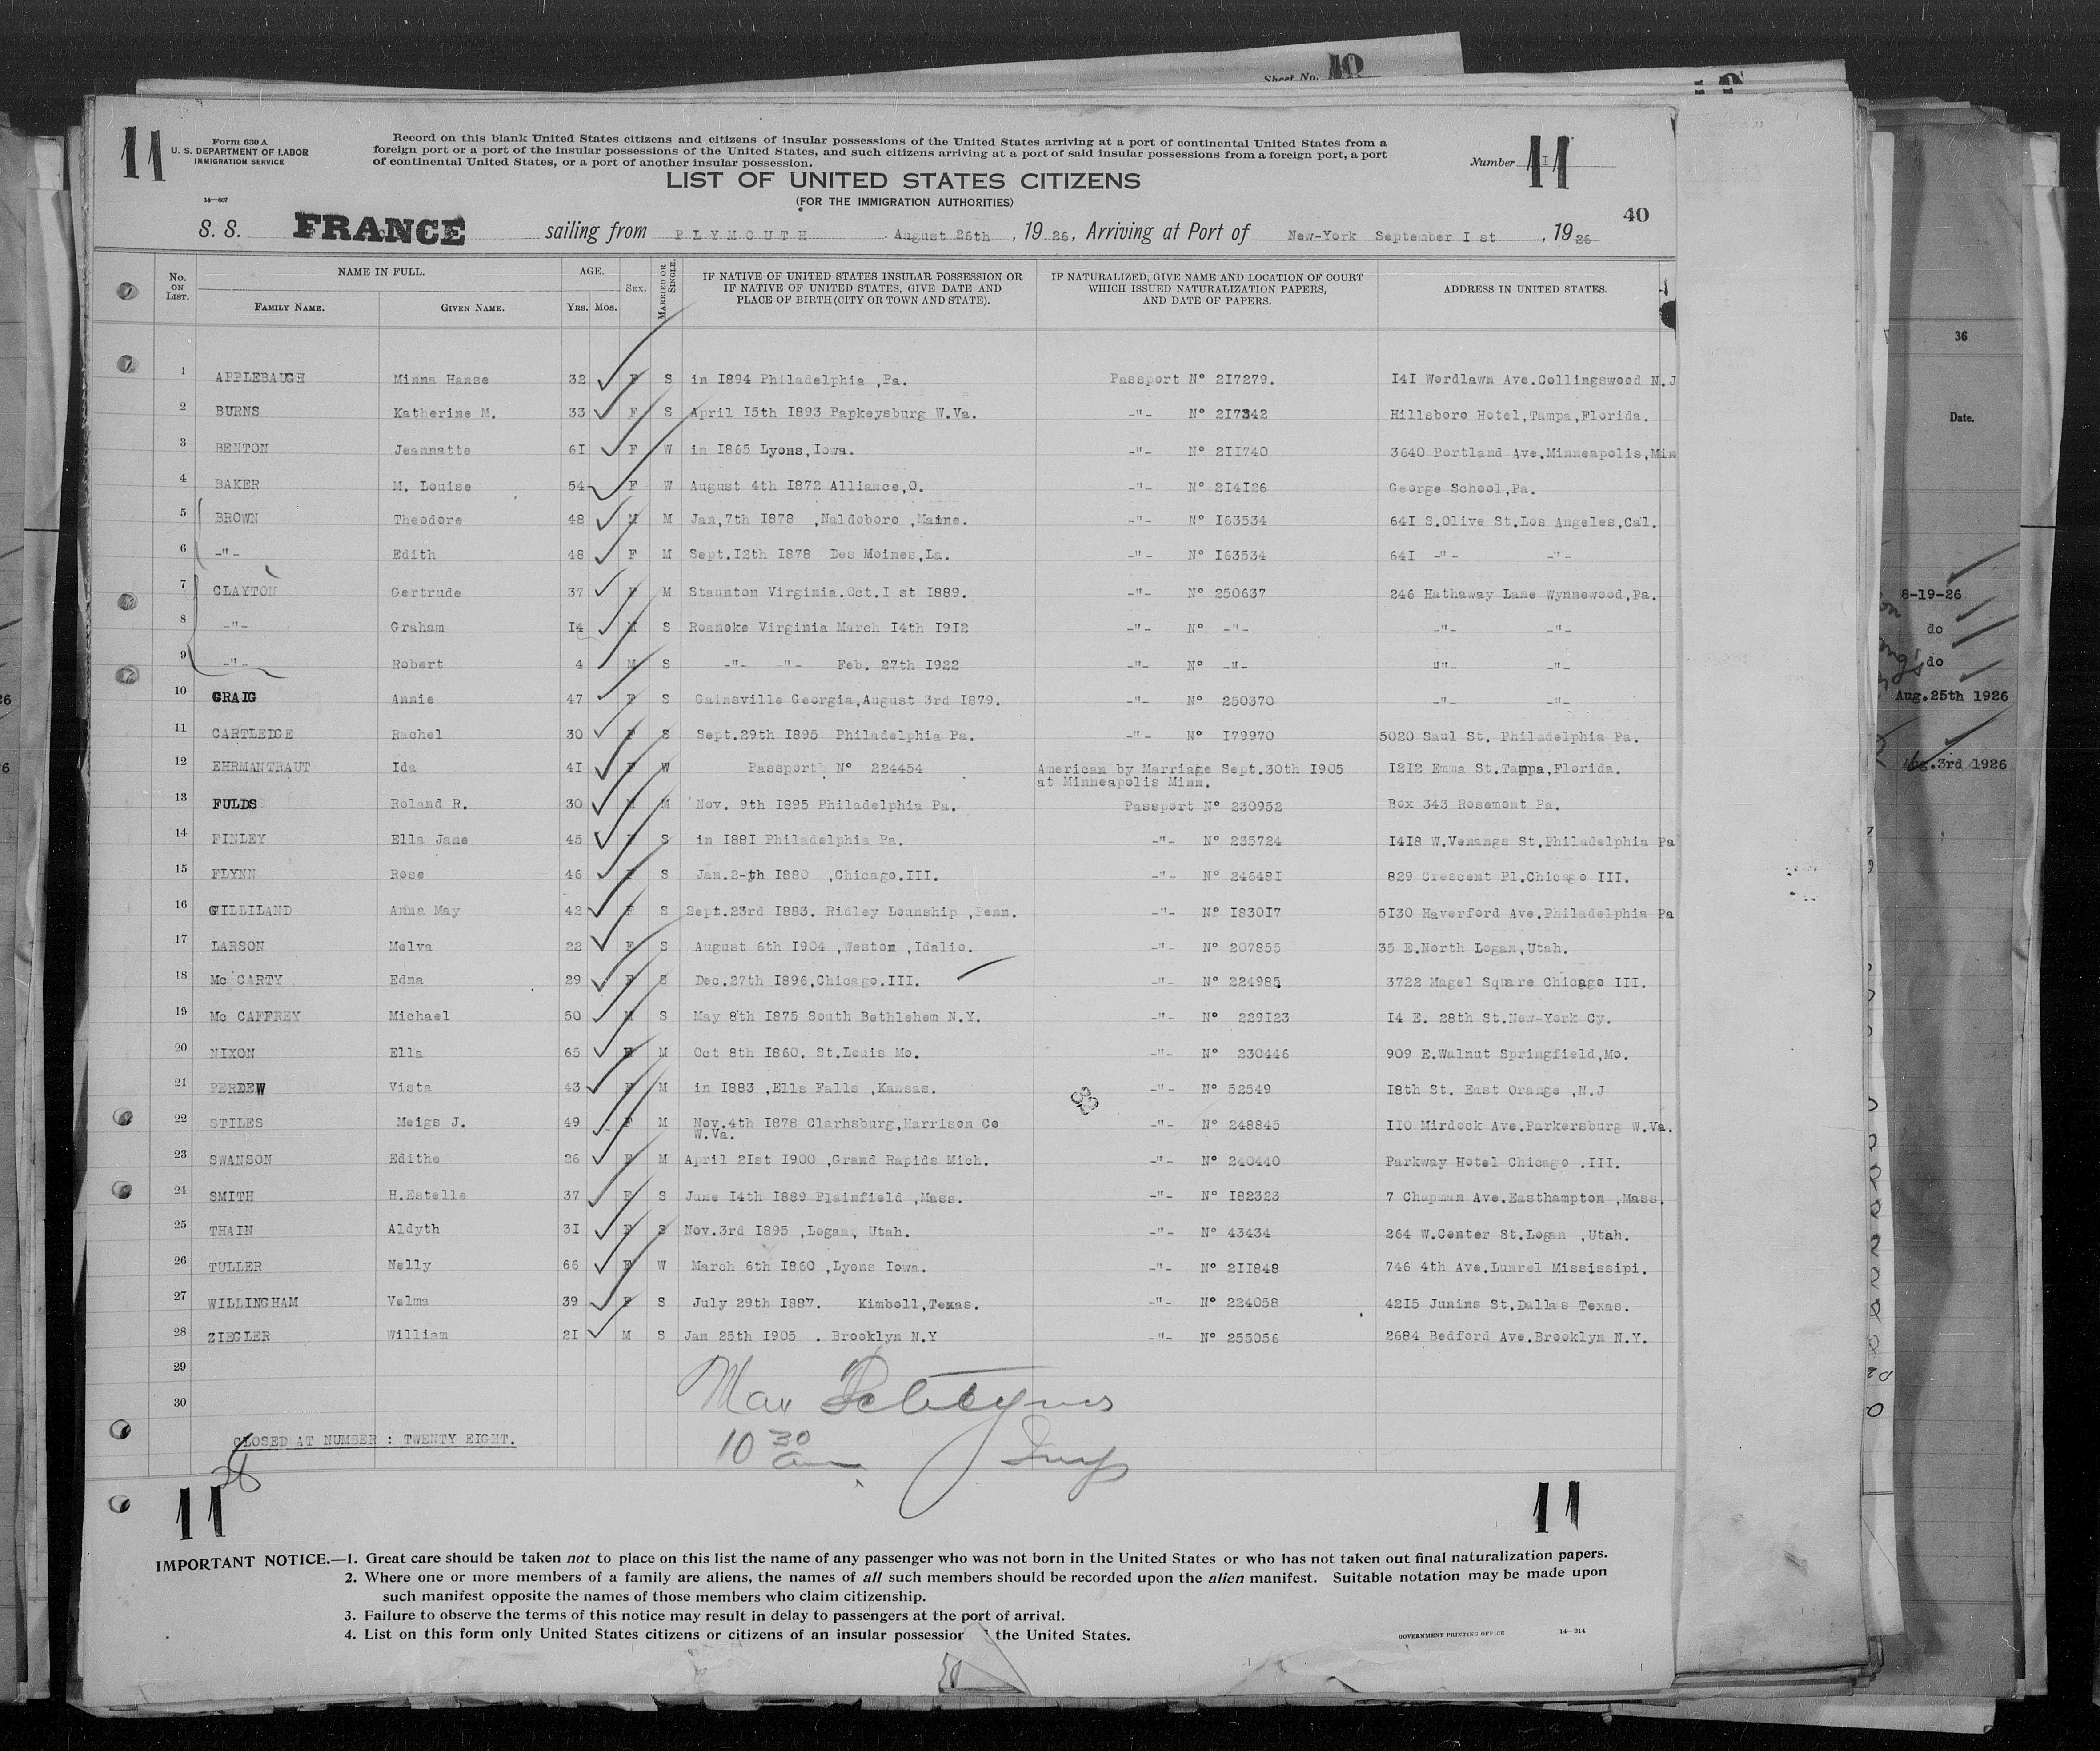 Sheet No. 10
11
Form 630 A
U. S. DEPARTMENT OF LABOR
IMMIGRATION SERVICE
14—607
Record on this blank United States citizens and citizens of insular possessions of the United States arriving at a port of continental United States from a
foreign port or a port of the insular possessions of the United States, and such citizens arriving at a port of said insular possessions from a foreign port, a port
of continental United States, or a port of another insular possession.
Number 11
LIST OF UNITED STATES CITIZENS
(FOR THE IMMIGRATION AUTHORITIES)
40
S. S. FRANCE sailing from PLYMOUTH August 26th, 1926, Arriving at Port of New-York September I st, 1926
No. ON LIST. NAME IN FULL. AGE. SEX. MARRIED OR SINGLE. IF NATIVE OF UNITED STATES INSULAR POSSESSION OR IF NATIVE OF UNITED STATES, GIVE DATE AND PLACE OF BIRTH (CITY OR TOWN AND STATE). IF NATURALIZED, GIVE NAME AND LOCATION OF COURT WHICH ISSUED NATURALIZATION PAPERS, AND DATE OF PAPERS. ADDRESS IN UNITED STATES.
FAMILY NAME. GIVEN NAME. YRS. MOS.
1 APPLEBAUGH Minna Hanse 32 F S in I894 Philadelphia ,Pa. Passport N° 2I7279. I4I Wordlawn Ave.Collingswood N.J
2 BURNS Katherine M. 33 F S April I5th I893 Papkeysburg W.Va. -"- N° 2I7342 Hillsboro Hotel,Tampa,Florida.
3 BENTON Jeannatte 6I F W in I865 Lyons,Iowa. -"- N° 2II740 3640 Portland Ave.Minneapolis,Min
4 BAKER M. Louise 54 F W August 4th I872 Alliance,O. -"- N° 2I4I26 George School,Pa.
5 BROWN Theodore 48 M M Jan,7th I878 ,Naldoboro ,Maine. -"- N° I63534 64I S.Olive St.Los Angeles,Cal.
6 -"- Edith 48 F M Sept.I2th I878 Des Moines,La. -"- N° I63534 64I -"- -"-
7 CLAYTON Gertrude 37 F M Staunton Virginia.Oct.I st I889. -"- N° 250637 246 Hathaway Lane Wynnewood,Pa.
8 -"- Graham I4 M S Roanoke Virginia March I4th I9I2 -"- N° -"- -"- -"-
9 -"- Robert 4 M S -"- -"- Feb. 27th I922 -"- N° -"- -"- -"-
10 GRAIG Annie 47 F S Gainsville Georgia,August 3rd I879. -"- N° 250370 -"- -"-
11 CARTLEDGE Rachel 30 F S Sept.29th I895 Philadelphia Pa. -"- N° I79970 5020 Saul St. Philadelphia Pa.
12 EHRMANTRAUT Ida 4I F W Passport N° 224454 American by Marriage Sept.30th I905 I2I2 Emma St.Tampa,Florida.
at Minneapolis Minn.
13 FULDS Roland R. 30 M M Nov. 9th I895 Philadelphia Pa. Passport N° 230952 Box 343 Rosemont Pa.
14 FINLEY Ella Jane 45 F S in I88I Philadelphia Pa. -"- N° 235724 I4I8 W.Venangs St.Philadelphia Pa
15 FLYNN Rose 46 F S Jan.2-th I880 ,Chicago.III. -"- N° 24648I 829 Crescent Pl.Chicago III.
16 GILLILAND Anna May 42 F S Sept.23rd I883. Ridley Lounship ,Penn. -"- N° I830I7 5I30 Haverford Ave.Philadelphia Pa
17 LARSON Melva 22 F S August 6th I904 ,Weston ,Idalio. -"- N° 207855 35 E.North Logan,Utah.
18 Mc CARTY Edna 29 F S Dec.27th I896,Chicago.III. -"- N° 224985 3722 Magel Square Chicago III.
19 Mc CAFFREY Michael 50 M S May 8th I875 South Bethlehem N.Y. -"- N° 229I23 I4 E. 28th St.New-York Cy.
20 NIXON Ella 65 M Oct 8th I860. St.Louis Mo. -"- N° 230446 909 E.Walnut Springfield,Mo.
21 PERDEW Vista 43 F M in I883 ,Ells Falls ,Kansas. -"- N° 52549 I8th St. East Orange ,N.J
22 STILES Meigs J. 49 F M Nov.4th I878 Clarhsburg,Harrison Co -"- N° 248845 II0 Mirdock Ave.Parkersburg W.Va.
W.Va.
23 SWANSON Edithe 26 F M April 2Ist I900 ,Grand Rapids Mich. -"- N° 240440 Parkway Hotel Chicago .III.
24 SMITH H.Estelle 37 F S June I4th I889 Plainfield ,Mass. -"- N° I82323 7 Chapman Ave.Easthampton ,Mass.
25 THAIN Aldyth 3I F S Nov.3rd I895 ,Logan, Utah. -"- N° 43434 264 W.Center St.Logan ,Utah.
26 TULLER Nelly 66 F W March 6th I860 ,Lyons Iowa. -"- N° 2II848 746 4th Ave.Lunrel Mississipi.
27 WILLINGHAM Velma 39 F S July 29th I887. Kimboll,Texas. -"- N° 224058 42I5 Junins St.Dallas Texas.
28 ZIEGLER William 2I M S Jan 25th I905 . Brooklyn N.Y -"- N° 255056 2684 Bedford Ave.Brooklyn N.Y.
29
30
Max
10 30 am Insp
CLOSED AT NUMBER : TWENTY EIGHT.
28
11
11
IMPORTANT NOTICE.—1. Great care should be taken not to place on this list the name of any passenger who was not born in the United States or who has not taken out final naturalization papers.
2. Where one or more members of a family are aliens, the names of all such members should be recorded upon the alien manifest. Suitable notation may be made upon
such manifest opposite the names of those members who claim citizenship.
3. Failure to observe the terms of this notice may result in delay to passengers at the port of arrival.
4. List on this form only United States citizens or citizens of an insular possession the United States.
GOVERNMENT PRINTING OFFICE 14—314
36
Date.
8-19-26
do
do
Aug.25th 1926
Aug.3rd 1926